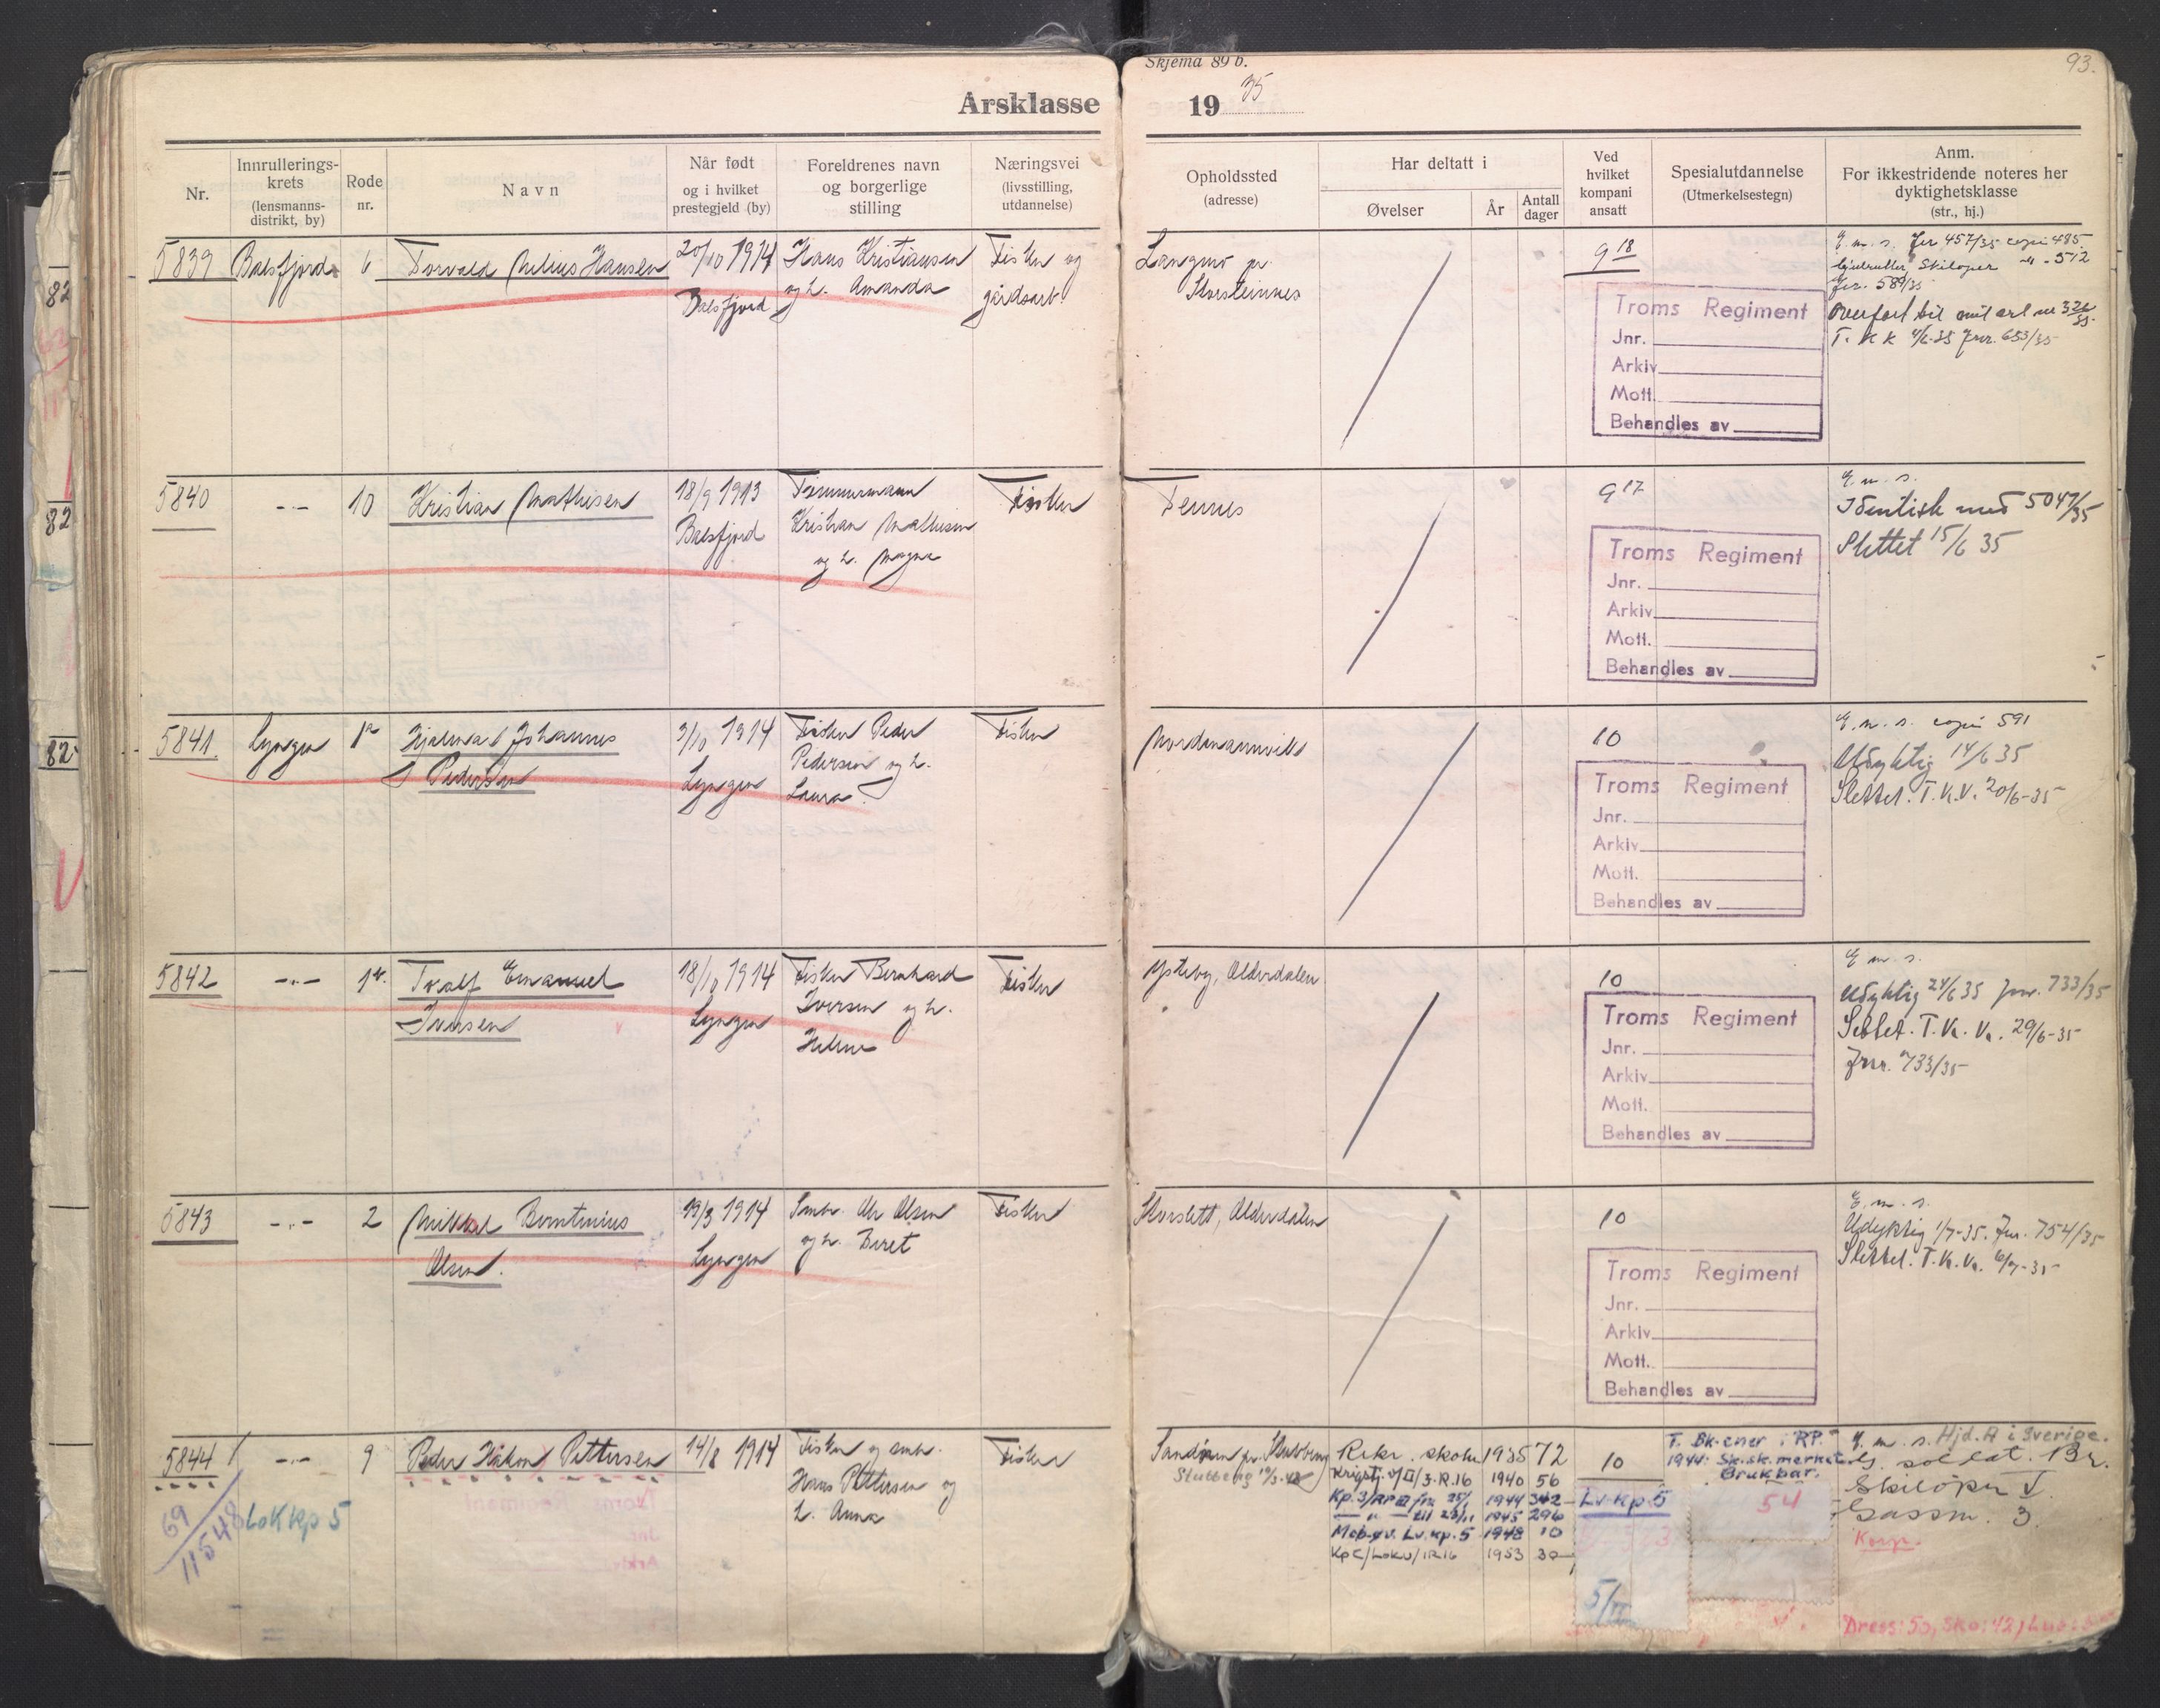 Skjema 89 b.
93.
Årsklasse 1935
Nr.
Innrullerings-
krets
(lensmanns-
distrikt, by)
Rode
nr.
Navn
Når født
og i hvilket
prestegjeld (by)
Foreldrenes navn
og borgerlige
stilling
Næringsvei
(livsstilling,
utdannelse)
Opholdssted
(adresse)
Har deltatt i
Øvelser
År
Antall
dager
Ved
hvilket
kompani
ansatt
Spesialutdannelse
(Utmerkelsestegn)
Anm.
For ikkestridende noteres her
dyktighetsklasse
(str., hj.)
5839 Balsfjord 6 Torvald Nelius Hansen
20/10 1914
Balsfjord
Hans Kristiansen
og h. Amanda
Fisker og
gårdsarb
Storsteinnes
9 18
E. m. s. Jnr 457/35 copi 485
Skiløper " - 512
Jnr. 589/35
Overført til
T. K K 4/6-35 Jnr. 653/35
Troms Regiment
Jnr.
Arkiv
Mott.
Behandles av
5840 -"- 10 Kristian Mathisen
18/9 1913
Balsfjord
Tømmermann
Kristian Mathisen
og h. Magna
Fisker
Tennes
9 17
E. m. s.
Identisk med 5047/35
Slettet 15/6 35
Troms Regiment
Jnr.
Arkiv
Mott.
Behandles av
5841. Lyngen 1a Hjalmar Johannes
Pedersen
3/10 1914
Lyngen
Fisker Peder
Pedersen og h.
Laura
Fisker
Nordmannvik
10
E. m. s. copi 591
Udyktig 14/6 35
Slettet. T.K.V. 20/6-35
Troms Regiment
Jnr.
Arkiv
Mott.
Behandles av
5842 -"- Emanuel
Iversen
18/10 1914
Lyngen
Fisker Bernhard
Iversen og h.
Fisker
Olderdalen
10
E m. s.
Udyktig 24/6 35 Jnr. 733/35
Slettet. T. K. V. 29/6-35
Jnr. 733/35
Troms Regiment
Jnr.
Arkiv
Mott.
Behandles av
5843 -"- 2 Mikkal Berntinius
Olsen.
19/3 1914
Lyngen
Småbr. Ole Olsen
og h. Beret
Fisker
Storslett, Olderdalen
10
E. m. s.
Udyktig 1/7-35. Jnr. 754/35
Slettet. T. K. V. 6/7-35
Troms Regiment
Jnr.
Arkiv
Mott.
Behandles av
5844 -"- 9 Peder Håkon Pettersen
69
11548
Lok kp 5
14/8 1914
Fisker og småbr.
Hans Pettersen og
h. Anna
Fisker
Rekr. skole 1935 72
Krigstj. 3.R.16 1940 56
Kp. 3/RP 1944 342
-"- til 23/11 1945 296
Mob.øv. Lv. kp. 5 1948 10
Kp C/Lokv/IR16 1953 30
10
Lv. kp 5
5/II
T. Sk.ener i "RP."
1944. Sk.sk.merket
Brukbar.
54
E. m. s. Hjd. A i Sverige.
G. soldat. Br.
Skiløper I
Gassm. 3
Korp.
Dress: 50, Sko: 42,